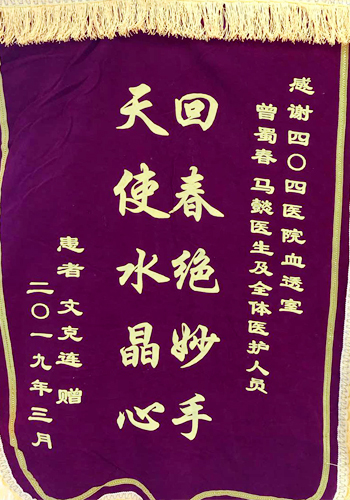 感谢四〇四医院血透室
曾蜀春 马懿医生及全体医护人员
回春绝妙手
天使水晶心
患者 文克连 赠
二〇一九年三月